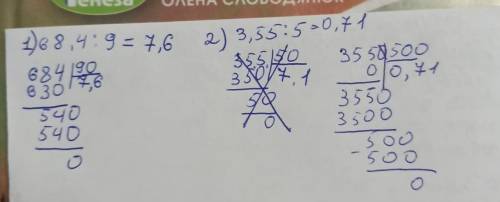 ОЛЕНА СЛОВОДЯНЮК
1) 68,4 : 9 = 7,6
684 | 90
630 | 7,6
540
540
0
2) 3,55 : 5 = 0,71
355 | 50
350 | 7,1
50
0
3550 | 500
0 | 0,71
3550
3500
500
- 500
0